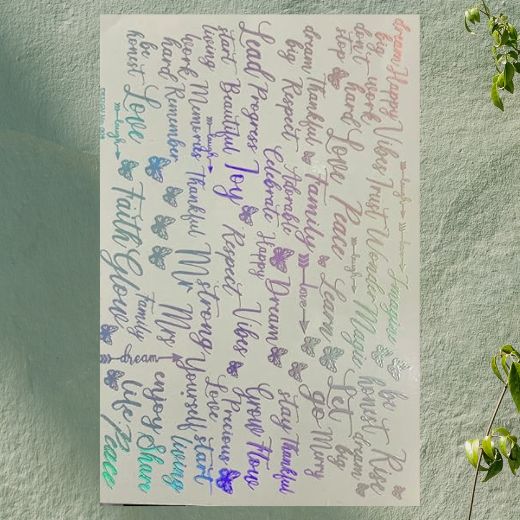 dream Happy Vibes laugh Imagine be Rise
big don't work Trust Wonder Magic honest dream
stop hard Love Peace laugh Let big
dream Thankful Family Learn go Merry
big Respect Adorable love Dream stay Thankful
Lead Progress Celebrate Happy Grow Flow
start Beautiful Joy Respect Vibes Precious
living laugh Love start
work Memories Thankful Mr Strong Yourself living
hard Remember Mrs enjoy Share
be family
honest Love Faith Glow dream Life Peace
laugh